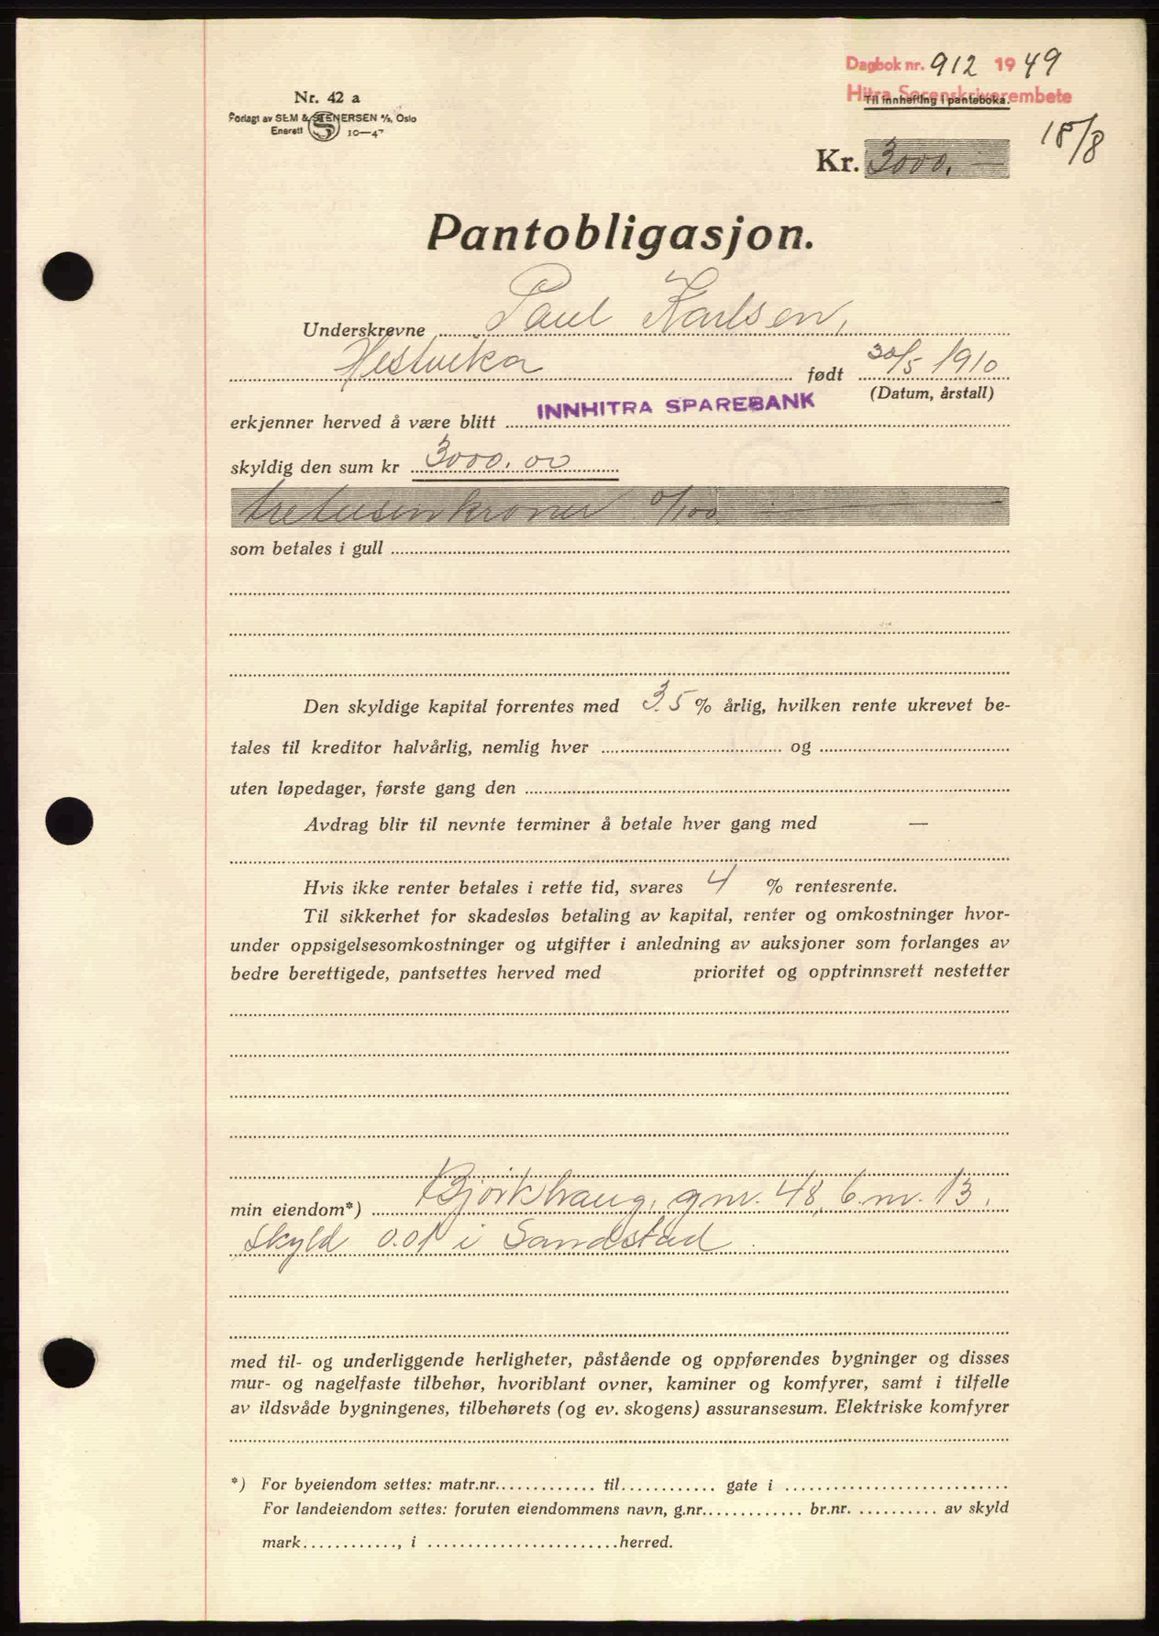 Dagbok nr. 912 1949
Hitra Sorenskriverembete
Til innhefting i panteboka.
18/8
Nr. 42 a
Forlagt av SEM & STENERSEN A/S, Oslo
Enerett S 10—47
Kr. 3000. —
Pantobligasjon.
Underskrevne Paul Karlsen,
Hestvika født 30/5 1910
(Datum, årstall)
erkjenner herved å være blitt INNHITRA SPAREBANK
skyldig den sum kr 3000.00
tretusenkroner 0/100
som betales i gull
Den skyldige kapital forrentes med 3.5 % årlig, hvilken rente ukrevet be-
tales til kreditor halvårlig, nemlig hver og
uten løpedager, første gang den
Avdrag blir til nevnte terminer å betale hver gang med —
Hvis ikke renter betales i rette tid, svares 4 % rentesrente.
Til sikkerhet for skadesløs betaling av kapital, renter og omkostninger hvor-
under oppsigelsesomkostninger og utgifter i anledning av auksjoner som forlanges av
bedre berettigede, pantsettes herved med prioritet og opptrinnsrett nestetter
min eiendom*) Bjørkhaug, gnr. 48, b.nr. 13.
skyld 0.01 i Sandstad
med til- og underliggende herligheter, påstående og oppførendes bygninger og disses
mur- og nagelfaste tilbehør, hvoriblant ovner, kaminer og komfyrer, samt i tilfelle
av ildsvåde bygningenes, tilbehørets (og ev. skogens) assuransesum. Elektriske komfyrer
*) For byeiendom settes: matr.nr. til gate i
For landeiendom settes: foruten eiendommens navn, g.nr. br.nr. av skyld
mark , i herred.